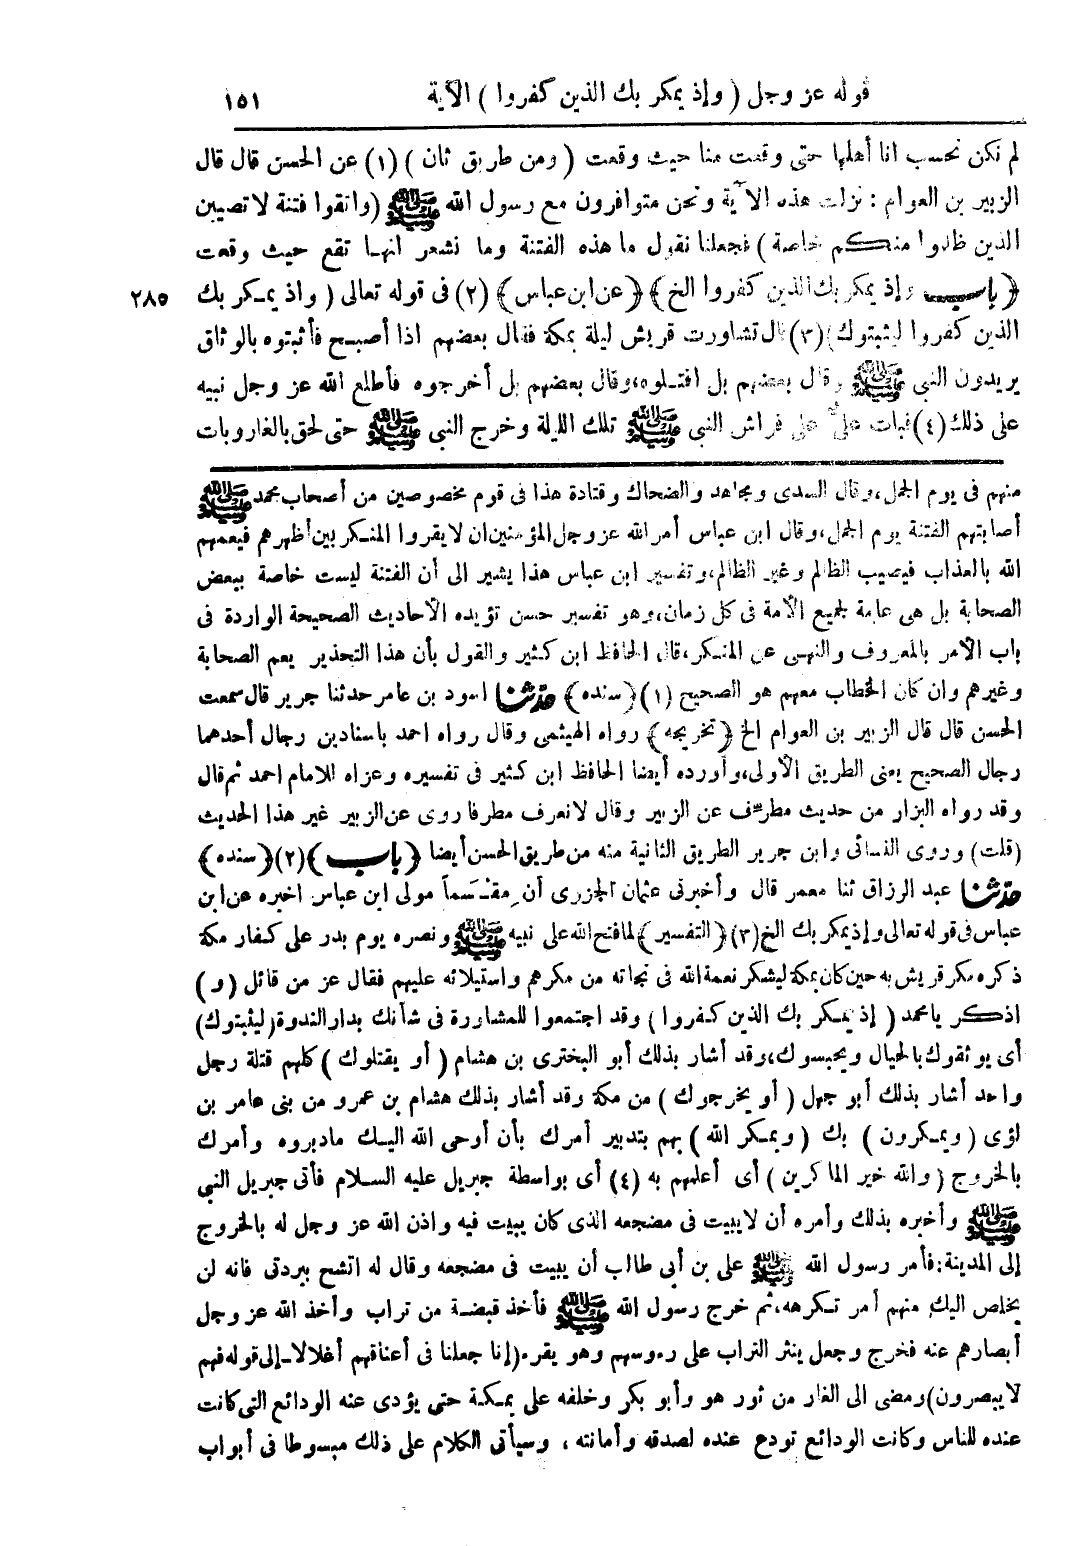 قوله عز وجل ( وإذ يمكر بك الذين كفروا ) الآية ١٥١
لم نكن نحسب انا أهلها حتى وقعت منا حيث وقعت ( ومن طريق ثان ) (١) عن الحسن قال قال
الزبير بن العوام : نزلت هذه الآية ونحن متوافرون مع رسول الله ﷺ (واتقوا فتنة لا تصيبن
الذين ظلموا منكم خاصة ) فجعلنا نقول ما هذه الفتنة وما نشعر انها تقع حيث وقعت
﴿ باب وإذ يمكر بك الذين كفروا الخ ﴾ ﴿ عن ابن عباس ﴾ (٢) فى قوله تعالى ( واذ يمكر بك ٢٨٥
الذين كفروا ليثبتوك) (٣) قال تشاورت قريش ليلة بمكة فقال بعضهم اذا أصبح فأثبتوه بالوثاق
يريدون النبى ﷺ وقال بعضهم بل اقتلوه،وقال بعضهم بل أخرجوه فأطلع الله عز وجل نبيه
على ذلك (٤) فبات علىٌّ على فراش النبى ﷺ تلك الليلة وخرج النبى ﷺ حتى لحق بالغار وبات
منهم فى يوم الجمل،وقال السدى ومجاهد والضحاك وقتادة هذا فى قوم مخصوصين من أصحاب محمد ﷺ
أصابتهم الفتنة يوم الجمل،وقال ابن عباس أمر الله عز وجل المؤمنين ان لا يقروا المنكر بين أظهرهم فيعمهم
الله بالعذاب فيصيب الظالم وغير الظالم،وتفسير ابن عباس هذا يشير الى أن الفتنة ليست خاصة ببعض
الصحابة بل هى عامة لجميع الأمة فى كل زمان،وهو تفسير حسن تؤيده الأحاديث الصحيحة الواردة فى
باب الأمر بالمعروف والنهى عن المنكر،قال الحافظ ابن كثير والقول بأن هذا التحذير يعم الصحابة
وغيرهم وان كان الخطاب معهم هو الصحيح (١) ﴿ سنده ﴾ حدثنا اسود بن عامر حدثنا جرير قال سمعت
الحسن قال قال الزبير بن العوام الخ ﴿ تخريجه ﴾ رواه الهيثمى وقال رواه احمد باسنادين رجال أحدهما
رجال الصحيح يعنى الطريق الأولى،وأورده أيضا الحافظ ابن كثير فى تفسيره وعزاه للامام احمد ثم قال
وقد رواه البزار من حديث مطرّف عن الزبير وقال لا نعرف مطرفا روى عن الزبير غير هذا الحديث
(قلت) وروى النسائى وابن جرير الطريق الثانية منه من طريق الحسن أيضا ﴿ باب ﴾ (٢) ﴿ سنده ﴾
حدثنا عبد الرزاق ثنا معمر قال وأخبرنى عثمان الجزرى أن مِقسَماً مولى ابن عباس اخبره عن ابن
عباس فى قوله تعالى وإذ يمكر بك الخ (٣) ﴿ التفسير ﴾ لما فتح الله على نبيه ﷺ ونصره يوم بدر على كفار مكة
ذكره مكر قريش به حين كان بمكة ليشكر نعمة الله فى نجاته من مكرهم واستيلائه عليهم فقال عز من قائل (و)
اذكر يا محمد ( إذ يمكر بك الذين كفروا ) وقد اجتمعوا للمشاورة فى شأنك بدار الندوة (ليثبتوك)
أى يوثقوك بالحبال ويحبسوك،وقد أشار بذلك أبو البخترى بن هشام ( أو يقتلوك ) كلهم قتلة رجل
واحد أشار بذلك أبو جهل ( أو يخرجوك ) من مكة وقد أشار بذلك هشام بن عمرو من بنى عامر بن
لؤى ( ويمكرون ) بك ( ويمكر الله ) بهم بتدبير أمرك بأن أوحى الله اليك ما دبروه وأمرك
بالخروج ( والله خير الماكرين ) أى أعلمهم به (٤) أى بواسطة جبريل عليه السلام فأتى جبريل النبى
ﷺ وأخبره بذلك وأمره أن لا يبيت فى مضجعه الذى كان يبيت فيه واذن الله عز وجل له بالخروج
إلى المدينة:فأمر رسول الله ﷺ على بن أبى طالب أن يبيت فى مضجعه وقال له اتشح ببردتى فانه لن
يخلص اليك منهم أمر تكرهه،ثم خرج رسول الله ﷺ فأخذ قبضة من تراب وأخذ الله عز وجل
أبصارهم عنه فخرج وجعل ينثر التراب على رءوسهم وهو يقرء (إنا جعلنا فى أعناقهم أغلالا-إلى قوله فهم
لا يبصرون) ومضى الى الغار من ثور هو وأبو بكر وخلفه على بمكة حتى يؤدى عنه الودائع التى كانت
عنده للناس وكانت الودائع تودع عنده لصدقه وأمانته ، وسيأتى الكلام على ذلك مبسوطا فى أبواب